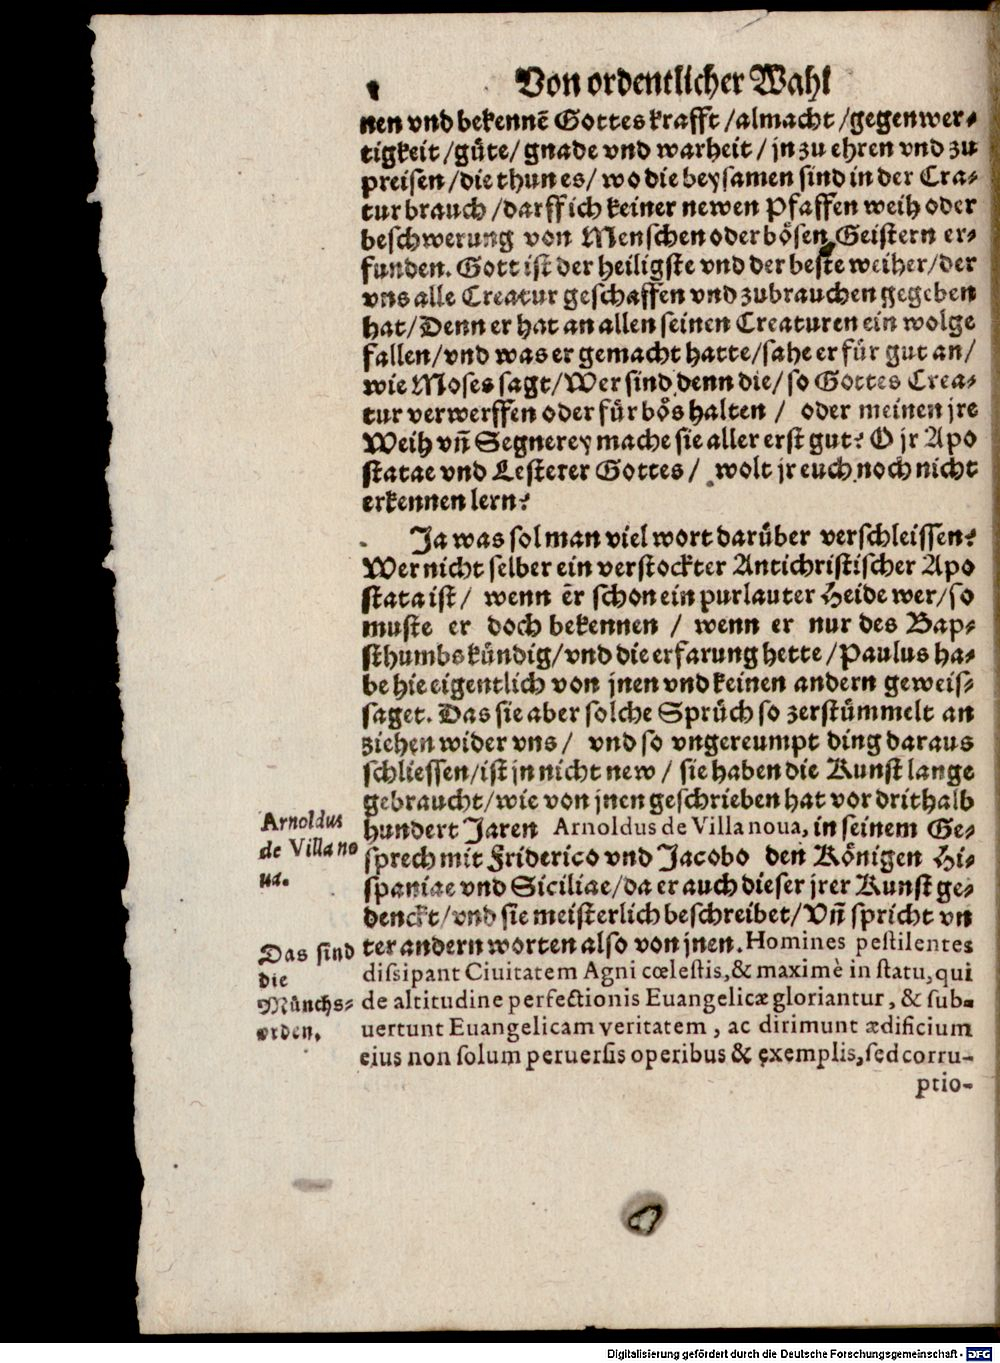 Von ordentlicher Wahl
nen vnd bekennē Gottes krafft /almacht /gegenwer-
tigkeit /güte/ gnade vnd warheit / jn zu ehren vnd zu
preisen /die thun es/ wo die beysamen sind in der Crea-
tur brauch /darff ich keiner newen Pfaffen weih oder
beschwerung von Menschen oder bösen Geistern er-
funden. Gott ist der heiligste vnd der beste weiher/der
vns alle Creatur geschaffen vnd zubrauchen gegeben
hat/Denn er hat an allen seinen Creaturen ein wolge
fallen/vnd was er gemacht hatte/sahe er für gut an/
wie Moses sagt/Wer sind denn die/ so Gottes Crea-
tur verwerffen oder für bös halten / oder meinen jre
Weih vn̄ Segnerey mache sie aller erst gut? O jr Apo
statae vnd Lesterer Gottes / wolt jr euch noch nicht
erkennen lern?
Ja was sol man viel wort darüber verschleissen?
Wer nicht selber ein verstockter Antichristischer Apo
stata ist / wenn er schon ein purlauter Heide wer/so
muste er doch bekennen / wenn er nur des Bap-
sthumbs kündig/vnd die erfarung hette /Paulus ha-
be hie eigentlich von jnen vnd keinen andern geweis-
saget. Das sie aber solche Sprüch so zerstümmelt an
ziehen wider vns / vnd so vngereumpt ding daraus
schliessen/ist jn nicht new / sie haben die Kunst lange
gebraucht/wie von jnen geschrieben hat vor drithalb
Arnoldus
de Villa no
ua.
hundert Jaren Arnoldus de Villa noua, in seinem Ge-
sprech mit Friderico vnd Jacobo den Königen Hi-
spaniae vnd Siciliae/da er auch dieser jrer Kunst ge-
denckt/vnd sie meisterlich beschreibet/Vn̄ spricht vn
Das sind
die
Münchs-
orden.
ter andern worten also von jnen. Homines pestilentes
dissipant Ciuitatem Agni cœlestis,& maximè in statu,qui
de altitudine perfectionis Euangelicæ gloriantur, & sub-
uertunt Euangelicam veritatem, ac dirimunt ædificium
eius non solum peruersis operibus & exemplis,sed corru-
ptio-
Digitalisierung gefördert durch die Deutsche Forschungsgemeinschaft - DFG